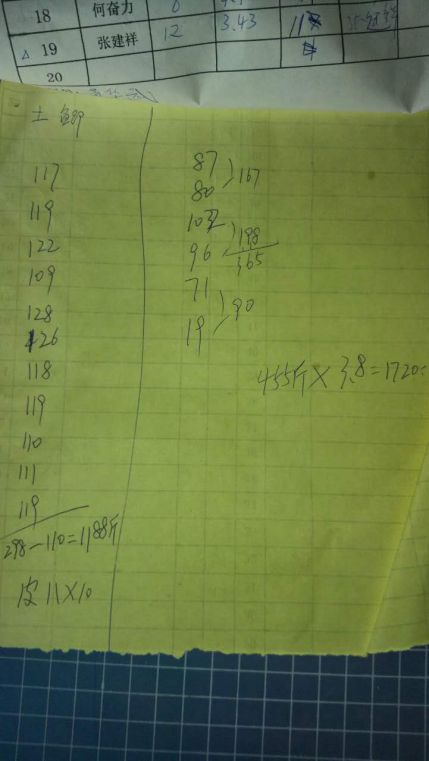 18 何奋力
△ 19 张建祥 12 3.43
20
土鲫
117
119
122
109
128
126
118
119
110
111
119
1298-110=1188斤
皮 11×10
87
80
167
102
96
198
365
71
19
90
455斤×3.8=1720